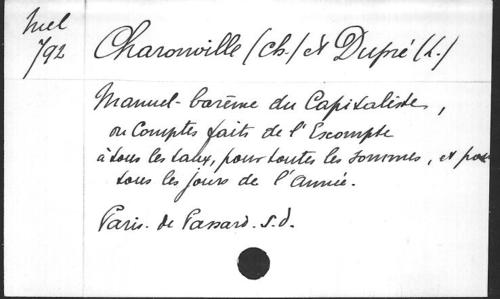 Mel
792
Charonville (Ch.) et Dupré (L.)
Manuel-barême du Capitaliste,
ou Comptes faits de l'Escompte
à tous les taux, pour toutes les sommes, et pour
tous les jours de l'Année.
Paris. de Passard. s.d.